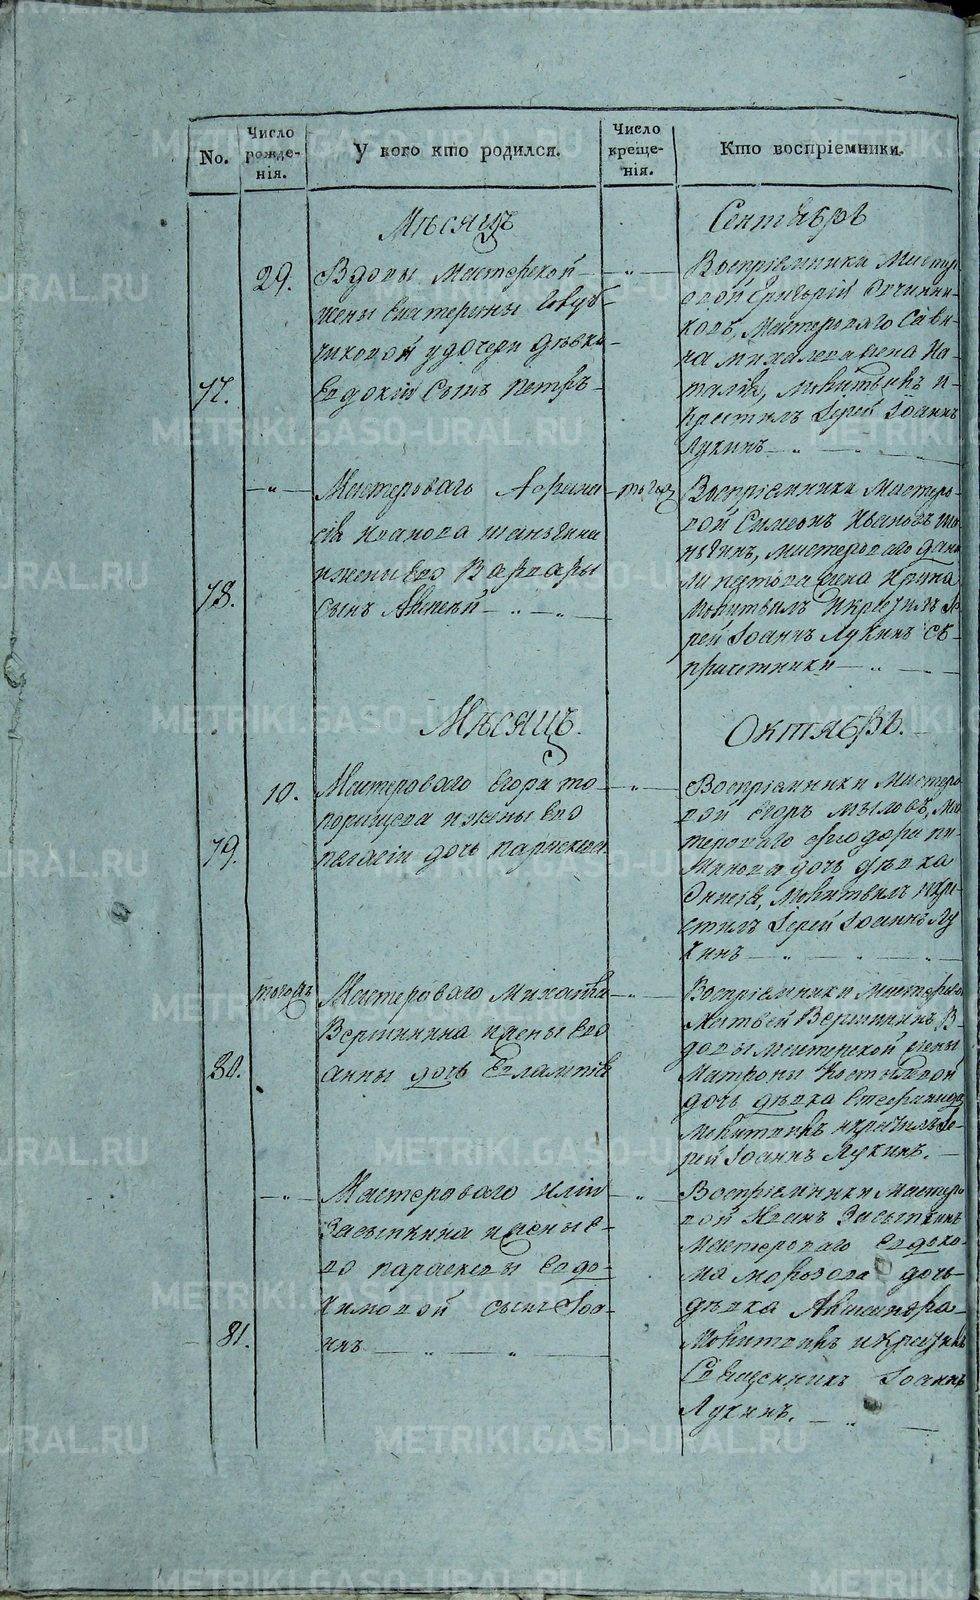 No.
Число рожде-нія.
У кого кто родился.
Число креще-нія.
Кто воспріемники.
Мѣсяцъ
Сентябрь
77.
29.
Вдовы Мастерской
жены Екатерины
дочери дѣвки
Евдокіи Сынъ Петръ
Воспріемники Мастер
овой Григорій Овчинни-
ковъ, Мастероваго Сави-
на жена На-
талія, Молитвилъ и
Крестилъ Іерей Іоаннъ
Лукинъ
78.
Мастероваго Афана
сія Иванова
и жены его Варвары
Сынъ Алексѣй
тогожъ
Воспріемники Мастеро-
вой Симеонъ Ивановъ
Мастероваго Дани
ла жена Ирина
Молитвилъ и крестилъ Іе-
рей Іоаннъ Лукинъ съ
причетники
Мѣсяцъ
Октябрь.
79.
10.
Мастероваго Егора То
порищева и жены его
Пелагіи дочь Параскева
Воспріемники Мастеро
вой Егоръ Мыловъ, Ма
стероваго Ѳеодора
дочь дѣвка
Анисія, Молитвилъ и кре-
стилъ Іерей Іоаннъ Лу
кинъ
80.
тогожъ
Мастероваго Матвѣя
Вершинина и жены его
Анны дочь Евлампія
Воспріемники Мастеровой
Матвей Вершининъ, В
довы Мастерской жены
Матроны Костылевой
дочь дѣвка
Молитвилъ и крестилъ Іе-
рей Іоаннъ Лукинъ.
81.
Мастероваго Иліи
Засыпкина и жены е-
го Параскевы Евдо-
кимовой сынъ Іоа-
ннъ
Воспріемники Мастеро
вой Иванъ Засыпкинъ
Мастероваго Евдоки-
ма Морозова дочь
дѣвка Александра
Молитвилъ и крестилъ
Священникъ Іоаннъ
Лукинъ.
METRIKI.GASO-URAL.RU